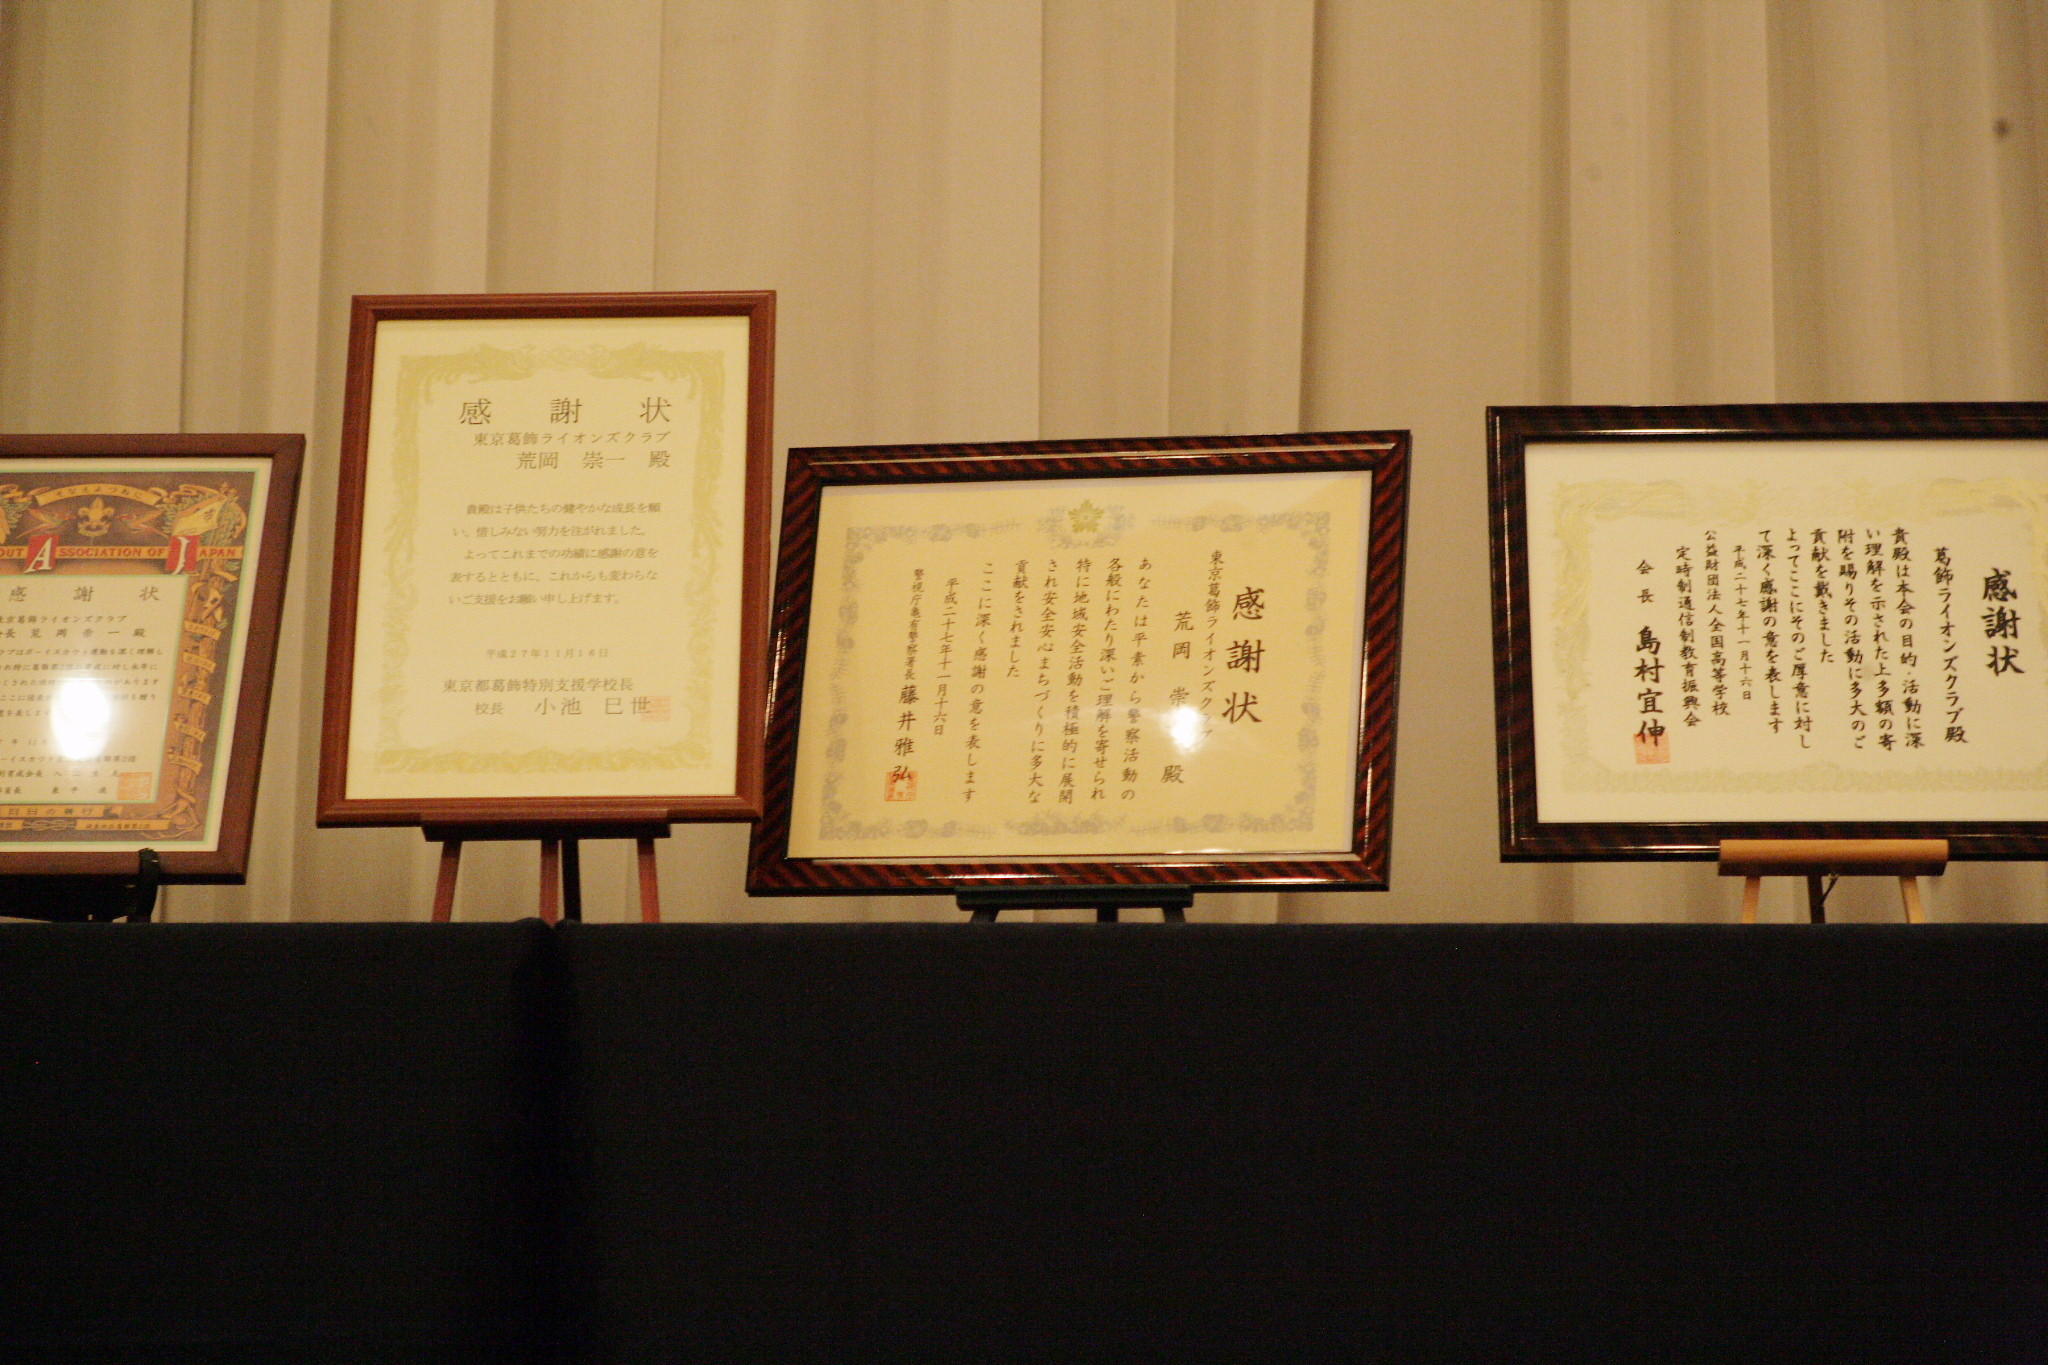 そなえよつねに
OUT ASSOCIATION OF JAPAN
感謝状
東京葛飾ライオンズクラブ
荒岡崇一殿
感謝状
東京葛飾ライオンズクラブ
荒岡 崇一 殿
貴殿は子供たちの健やかな成長を願
い、惜しみない努力を注がれました。
よってこれまでの功績に感謝の意を
表するとともに、これからも変わらな
いご支援をお願い申し上げます。
平成27年11月16日
東京都葛飾特別支援学校長
校長 小池 巳世
感謝状
東京葛飾ライオンズクラブ
荒岡 崇 殿
あなたは平素から警察活動の
各般にわたり深いご理解を寄せられ
特に地域安全活動を積極的に展開
され安全安心まちづくりに多大な
貢献をされました
ここに深く感謝の意を表します
平成二十七年十一月十六日
警視庁亀有警察署長 藤井雅弘
感謝状
葛飾ライオンズクラブ殿
貴殿は本会の目的・活動に深
い理解を示された上多額の寄
附を賜りその活動に多大のご
貢献を戴きました
よってここにそのご厚意に対し
て深く感謝の意を表します
平成二十七年十一月十六日
公益財団法人全国高等学校
定時制通信制教育振興会
会長 島村宜伸